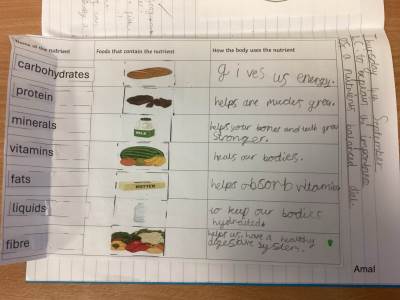 Name of the nutrient
Foods that contain the nutrient
How the body uses the nutrient
carbohydrates
gives us energy.
protein
helps are mucles grow.
minerals
MILK
helps your bones and teeth grow
stronger.
vitamins
heals our bodies.
fats
BUTTER
helps absorb vitamins
liquids
to keep our bodies
hydraded.
fibre
helps us have a healthy
digestive system.
Tuesday September
LC to explain the importance
of a nutritious balanced diet.
Amal